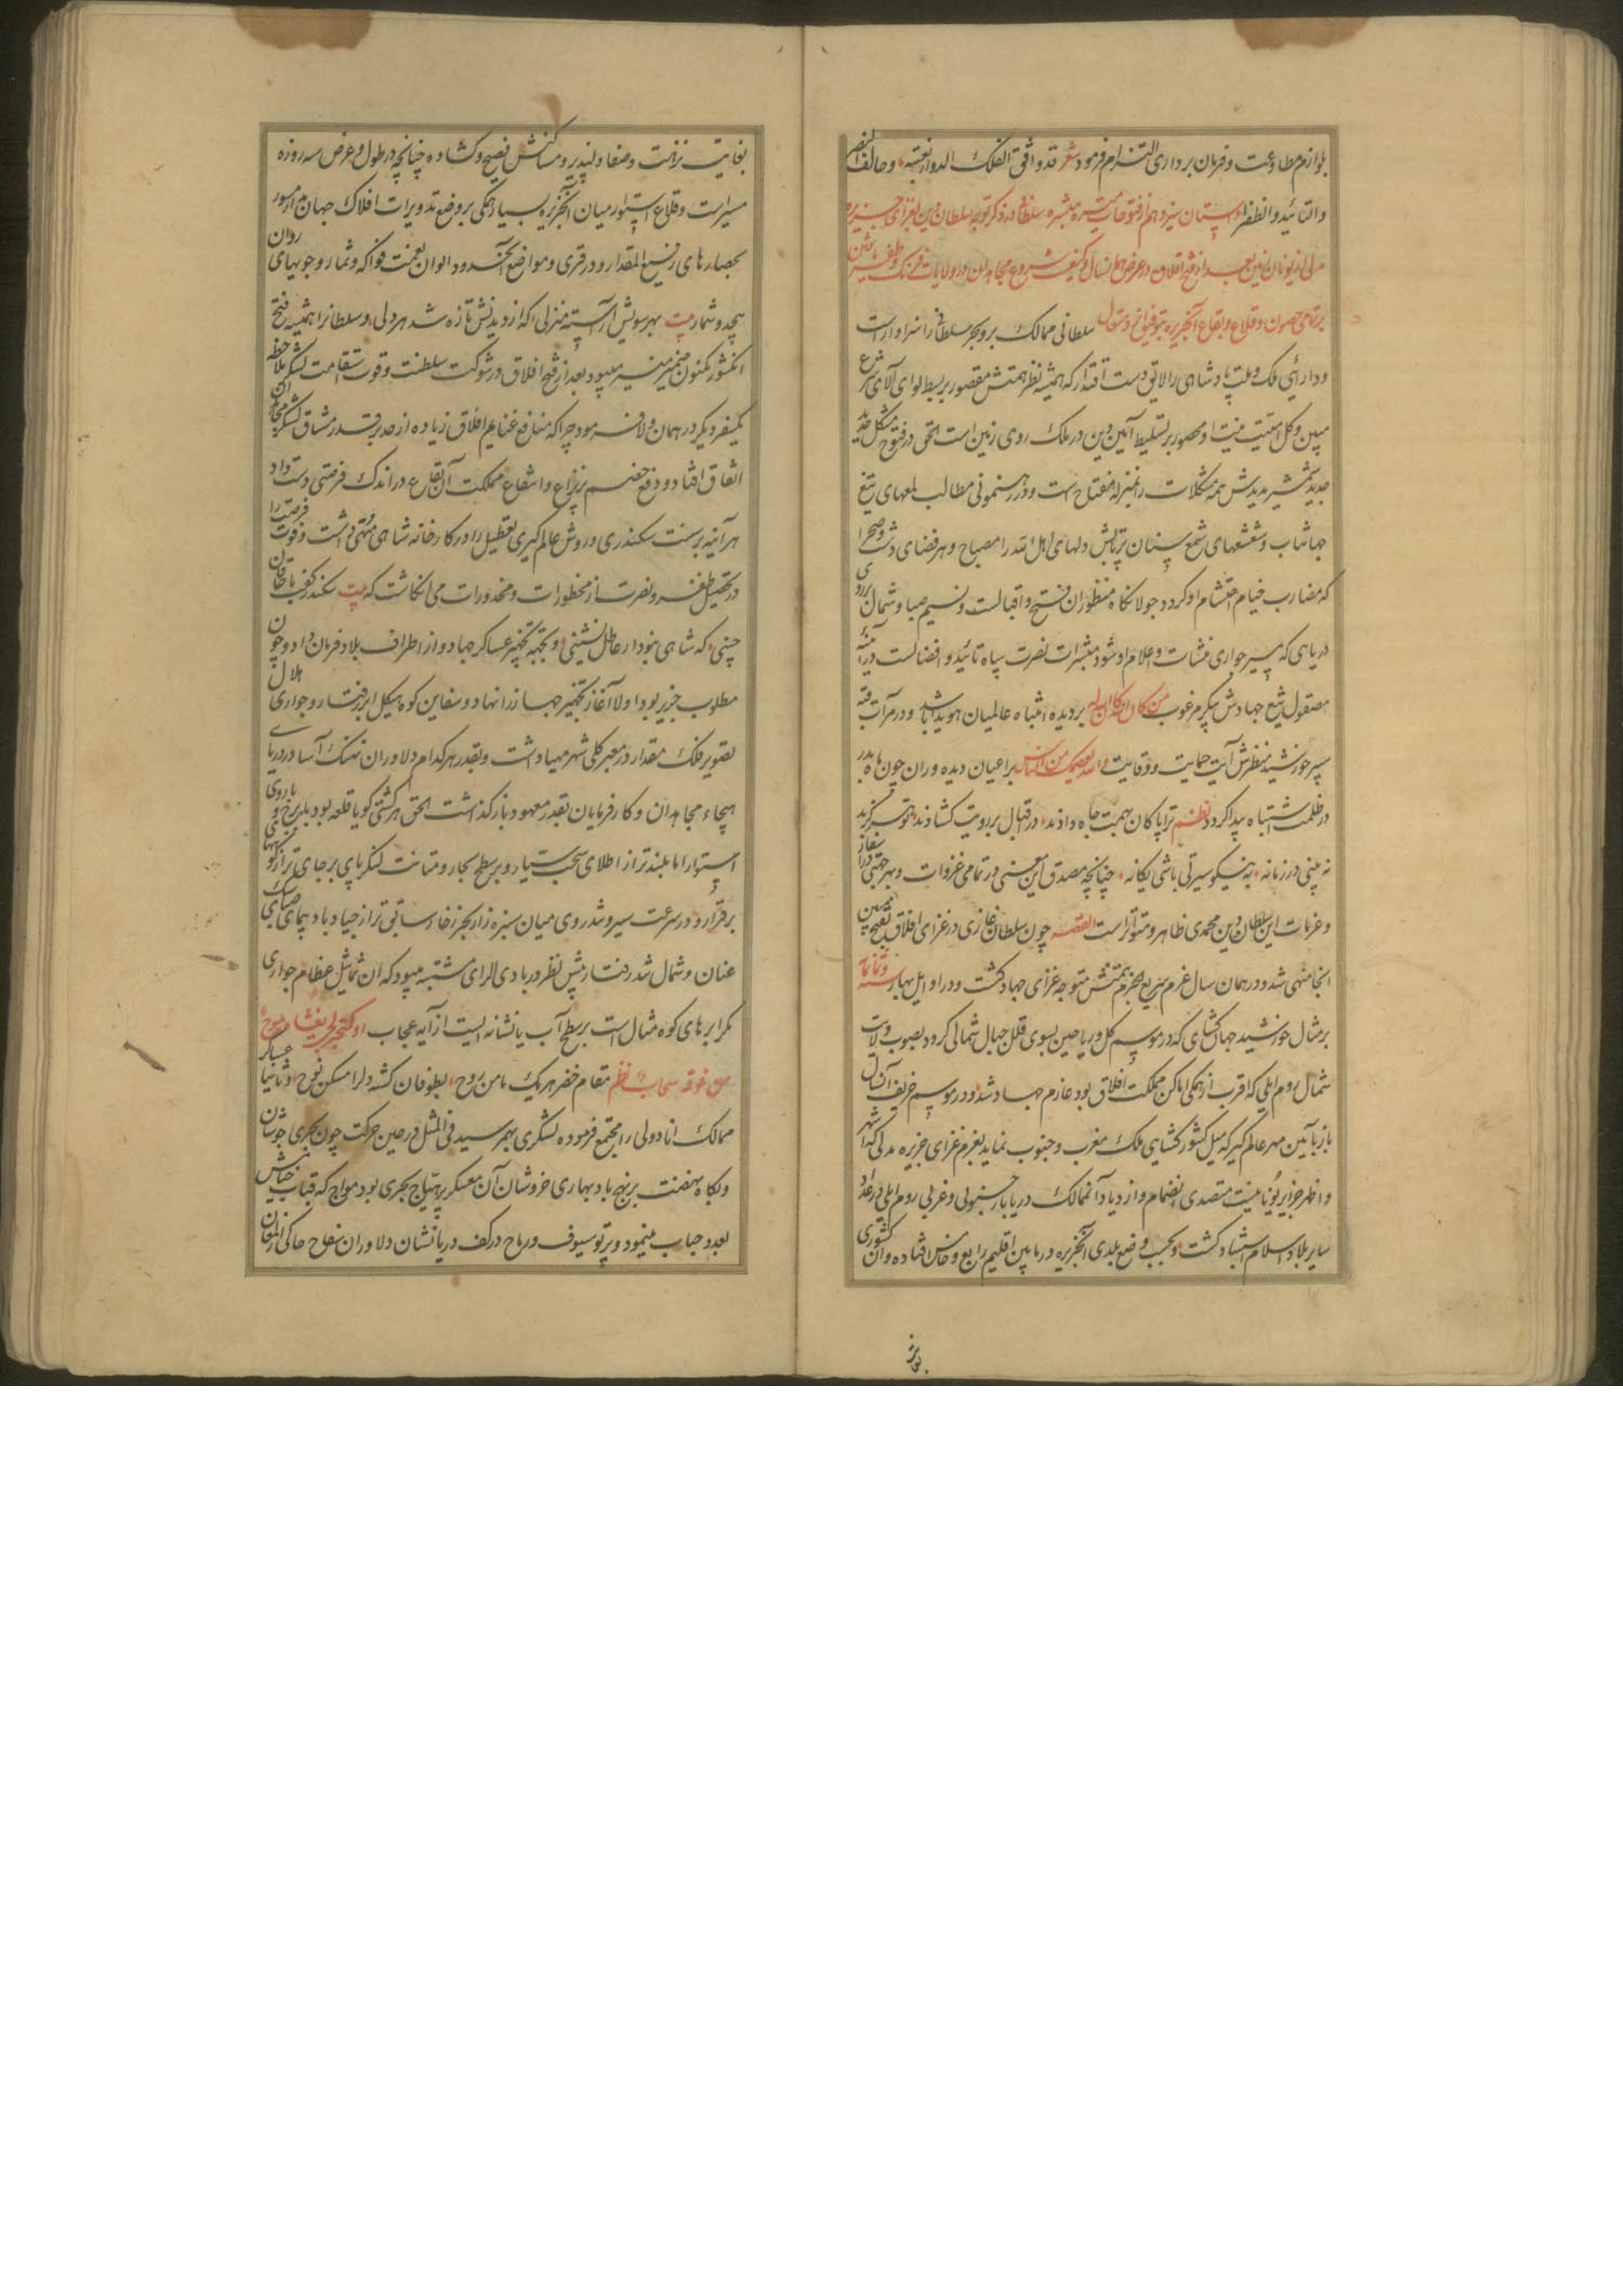 بلوازم مطاوعت و فرمان برداری التزام فرمود شعر قد وافق الفلک الدوار بغیته و حالف النصر
والتائید والظفرا داستان سیزدهم از فتوحات میسره مبشره سلطانی در ذکر توجه سلطان دین بغزای جزیره
مدلی از یونان زمین بعد از فتح افلاق در عرض همان سال و کیفیت شروع مجاهدان در ولایات فرنک و ظفر یافتن
بر تمامی حصون و قلاع و بقاع آنجزیره بتوفیق ایزد متعال سلطانی ممالک بر و بحر سلطانی را سزاوار است
و دارایی ملک و ملت پادشاهی را لایق دست اقتدار که همیشه نظر همتش مقصور بر بسط لوای آلای شرع
مبین و کل امنیت نیت او محصور بر تسلیط آیین دین در ملک روی زمین است الحق در فتوح مشکل حدید
حدید شمشیر پدیدش همه مشکلات را بمنزله مفتاح است و در رهنمونی مطالب لمعهای تیغ
جهانتاب و شعشعهای شمع سنان پرتابش دلهای اهل الله را مصباح و هر فضای دشت و صحرا
که مضارب خیام احتشام او کردد جولانکاه منظوران فتح و اقبالست و نسیم صبا و شمال بر روی
دریاهی که مسیر جواری منشات و اعلام او شود مبشرات نصرت سپاه تائید و افضالست در آئینه
مصقول تیغ جهادش پیکر مرغوب من کان لله کان الله له بر دیده انتباه عالمیان هویدا باشد و در مرآت قبه
سپر خورشید منظرش آیت حمایت و وقایت والله یعصمک من الناس بر اعیان دیده وران چون ماه بدر
در ظلمت اشتباه پیدا کردد نظم ترا پاکان بهمت جاه دادند در اقبال بر رویت کشادند تو سر کزید
نه بینی در زمانه به نیکو سیرتی باشی یکانه چنانچه مصدق این معنی در تمامی غزوات و بهر جهتی در اسفار
و عزمات این سلطان دین محمدی ظاهر و متواتر است القصه چون سلطان غازی در غزای افلاق بفتح مبین
انجا منهی شد و در همان سال عزم سریع الجزم بهمتش متوجه غزای جهاد کشت و در اوایل بهار سنه و ثمانمائه
بر مثال خورشید جهانکشای که در موسم کل و ریاحین بسوی قلل جبال شمالی کردد بصوب ولایت
شمال روم ایلی که اقرب از همکی اماکن مملکت افلاق بود عازم جهاد شد و در موسم خریف آنسال
باز بآیین مهر عالم کیر که میل کشور کشایی ملک مغرب و جنوب نماید بعزم غزای جزیره مدلی که اشهر
و اعظم جزایر یونانیست متصدی انضمام و ازدیاد آنممالک دریابار جنوبی و غربی روم ایلی در اعداد
سایر بلاد اسلام اشتباد کشت و بحسب وضع بلدی آنجزیره در مابین اقلیم رابع و خامس افتاده و آن کشوری
بغایت
بغایت نزهت و صفا دلپذیر و مساکنش فصیح و کشاده چنانچه در طول و عرض سه روزه
مسیر است و قلاع استوار میان آنجزیره بسیار همکی بر وضع تدویرات افلاک جهان مدار مسور
بحصارهای رفیع المقدار و در قری و مواضع آنحدود الوان نعمت فواکه و ثمار و جویهای روان
بیحد و شمار بیت بهر سویش آراسته منزلی که از دیدنش تازه شد هر دلی و سلطانرا همیشه فتح
انکشور مکنون ضمیر منیر میبود بعد از فتح افلاق در شوکت سلطنت و قوت استقامت لشکر ملاحظه
یکسفر دیکر در همان ولا فرمود چرا که منافع غنایم افلاق زیاده از حد بر قدر مشاق لشکر مجاهدان
اتفاق افتاد و دفع خصم پر نزاع و انتفاع مملکت آن بقاع در اندک فرصتی دست داد
هر آینه بر سنت سکندری و روش عالم کیری تعطیل را در کارخانه شاهی منتهی داشت و فوت فرصت را
در تحصیل ظفر و نصرت از محظورات و محذورات می انکاشت که بیت سکندر کفت با خاقان
چینی که شاهی نبود از عاطل نشینی و بتهیه تجهیز عساکر جهاد و از اطراف بلاد فرمان داد و چون
مطلوب جزیر بود اولا آغاز تجهیز جهازرا نهاد و سفاین کوه هیکل ابر رفتار و جواری هلال
تصویر فلک مقدار در معبر کلی شهر مهیا داشت و بقدر هر کدام دلاوران نهنک آسا در دریای
هیجاء مجاهدان و کارفرمایان بقدر معهود باز کذاشت الحق هر کشتی کویا قلعه بود با برج و باروی
استوار اما بلندتر از اطلای سحب سیار و بر سطح بحار و متانت لنکر پای بر جای تر از کوههای
برقرار و در سرعت سیر و شد روی میان سبزه زار بحر زخار سابق تر از جیاد باد پیمای صبا
عنان و شمال شد رفتار پیش نظر در بادی الرای مشتبه میبود که ان تماثیل عظام جواری
مکر ابرهای کوه مثال است بر سطح آب یا نشانه ایست از آیه عجاب او کظلمات فی بحر لجی یغشاه موج
من فوقه سحاب نظم مقام خضر هر یک مامن روح بطوفان کشته دلرا مسکن نوح و ثانیا عساکر
ممالک اناطولی را مجتمع فرموده لشکری بهم رسید فی المثل در حین حرکت چون بحری جوشان
و بکاه نهضت بر نهج باد بهاری خروشان آن معسکر پر هیاج بحری بود مواج که قباب خیامش
بعدد حباب مینمود و پرتو سیوف و رماح در کف دریا نشان دلاوران سفاح حاکی از لمعان